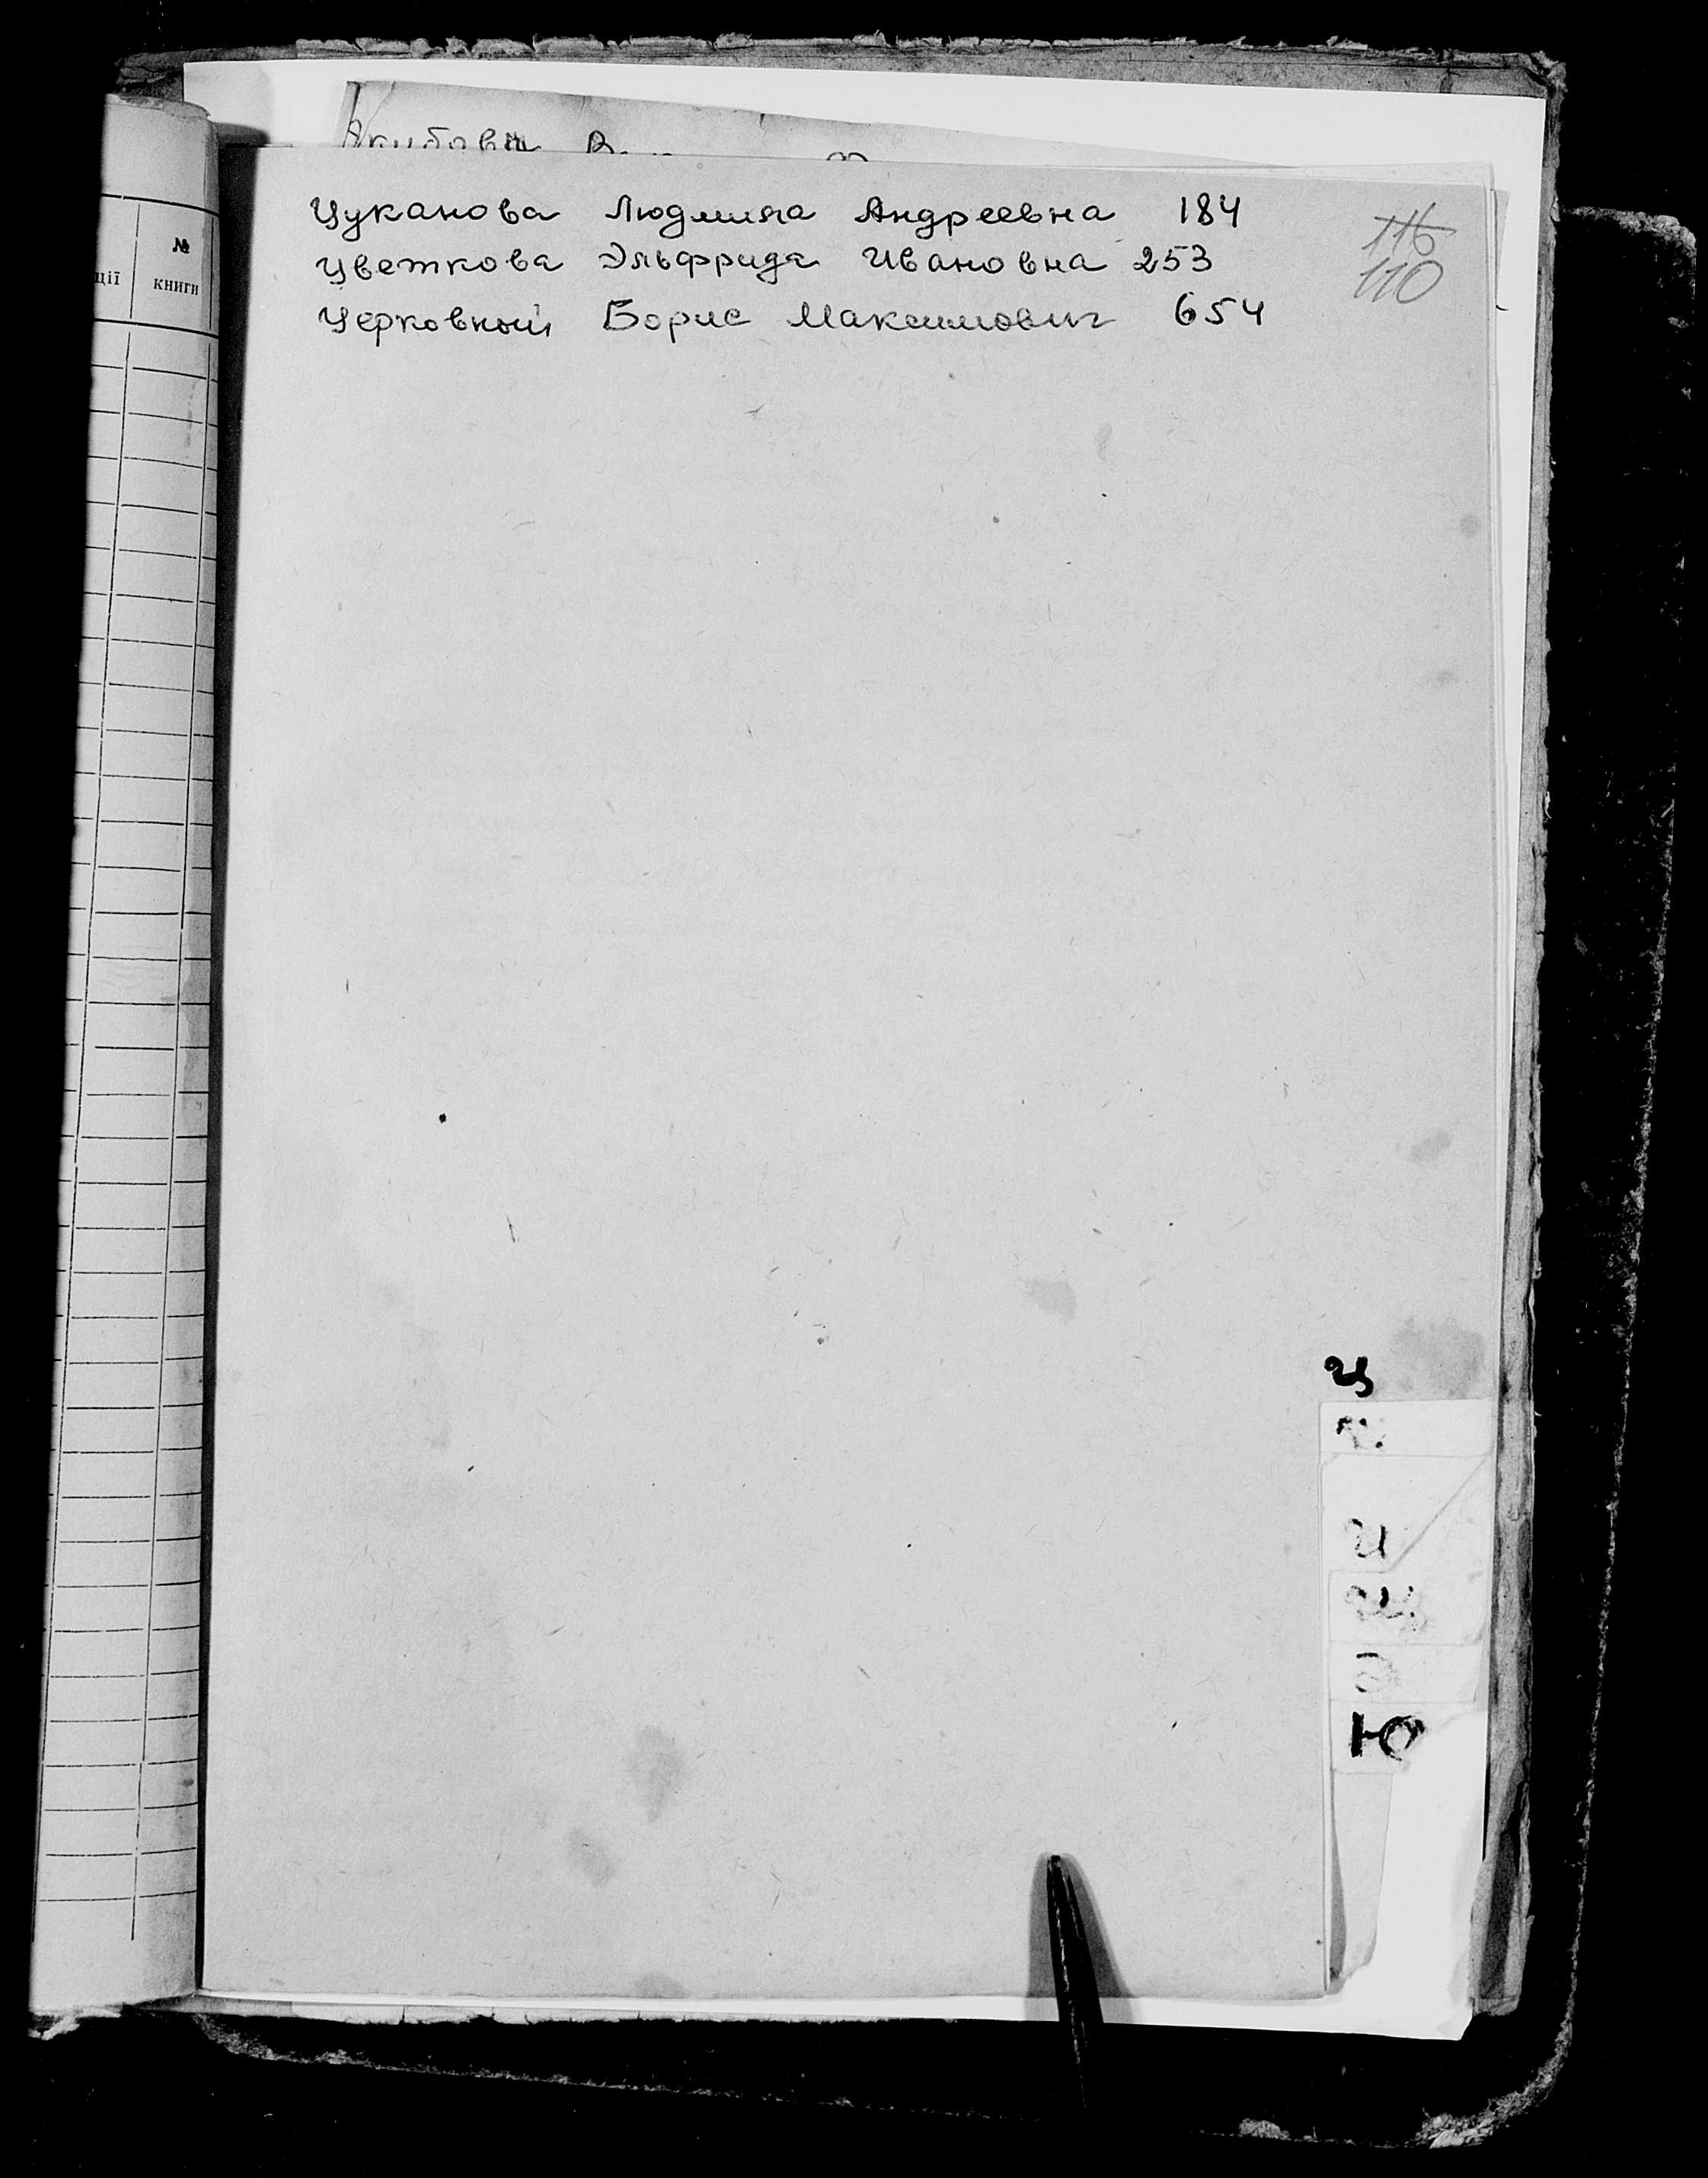 Цуканова Людмила Андреевна 184
Цветкова Эльфрида Ивановна 253
Церковный Борис Максимович 654
116
110
ції
№
книги
Ц
Ю